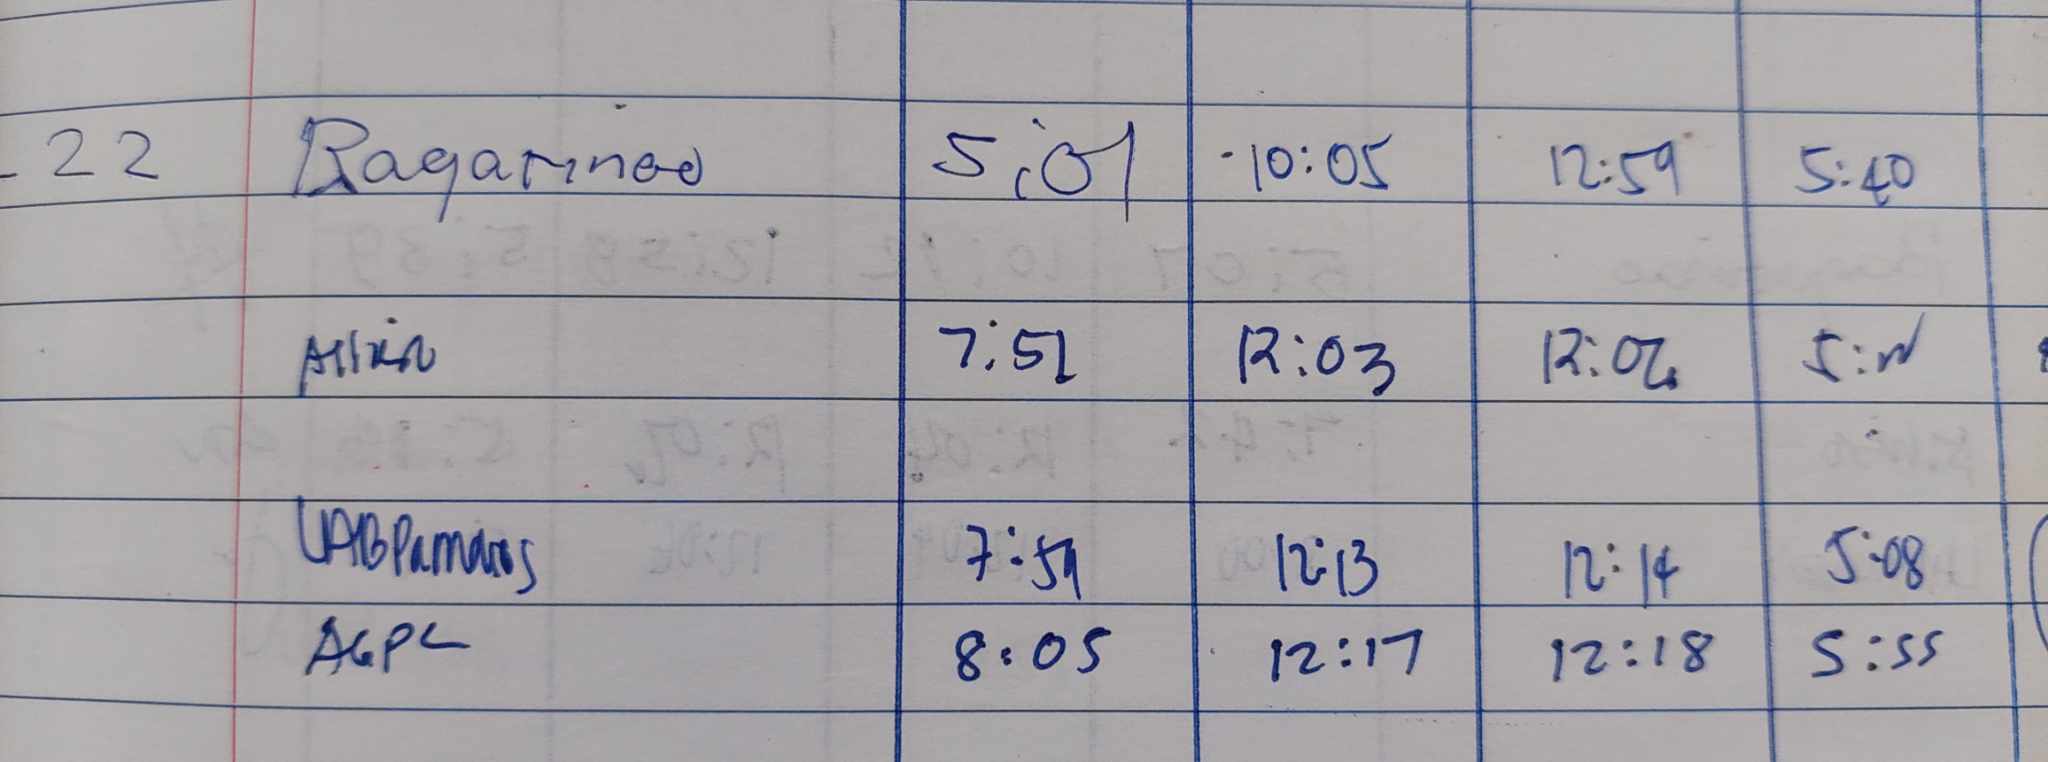 -22 Ragarinoo 5:01 10:05 12:59 5:40
7:51 12:03 12:02
7:59 12:13 12:14 5:08
AGPL 8:05 12:17 12:18 5:55